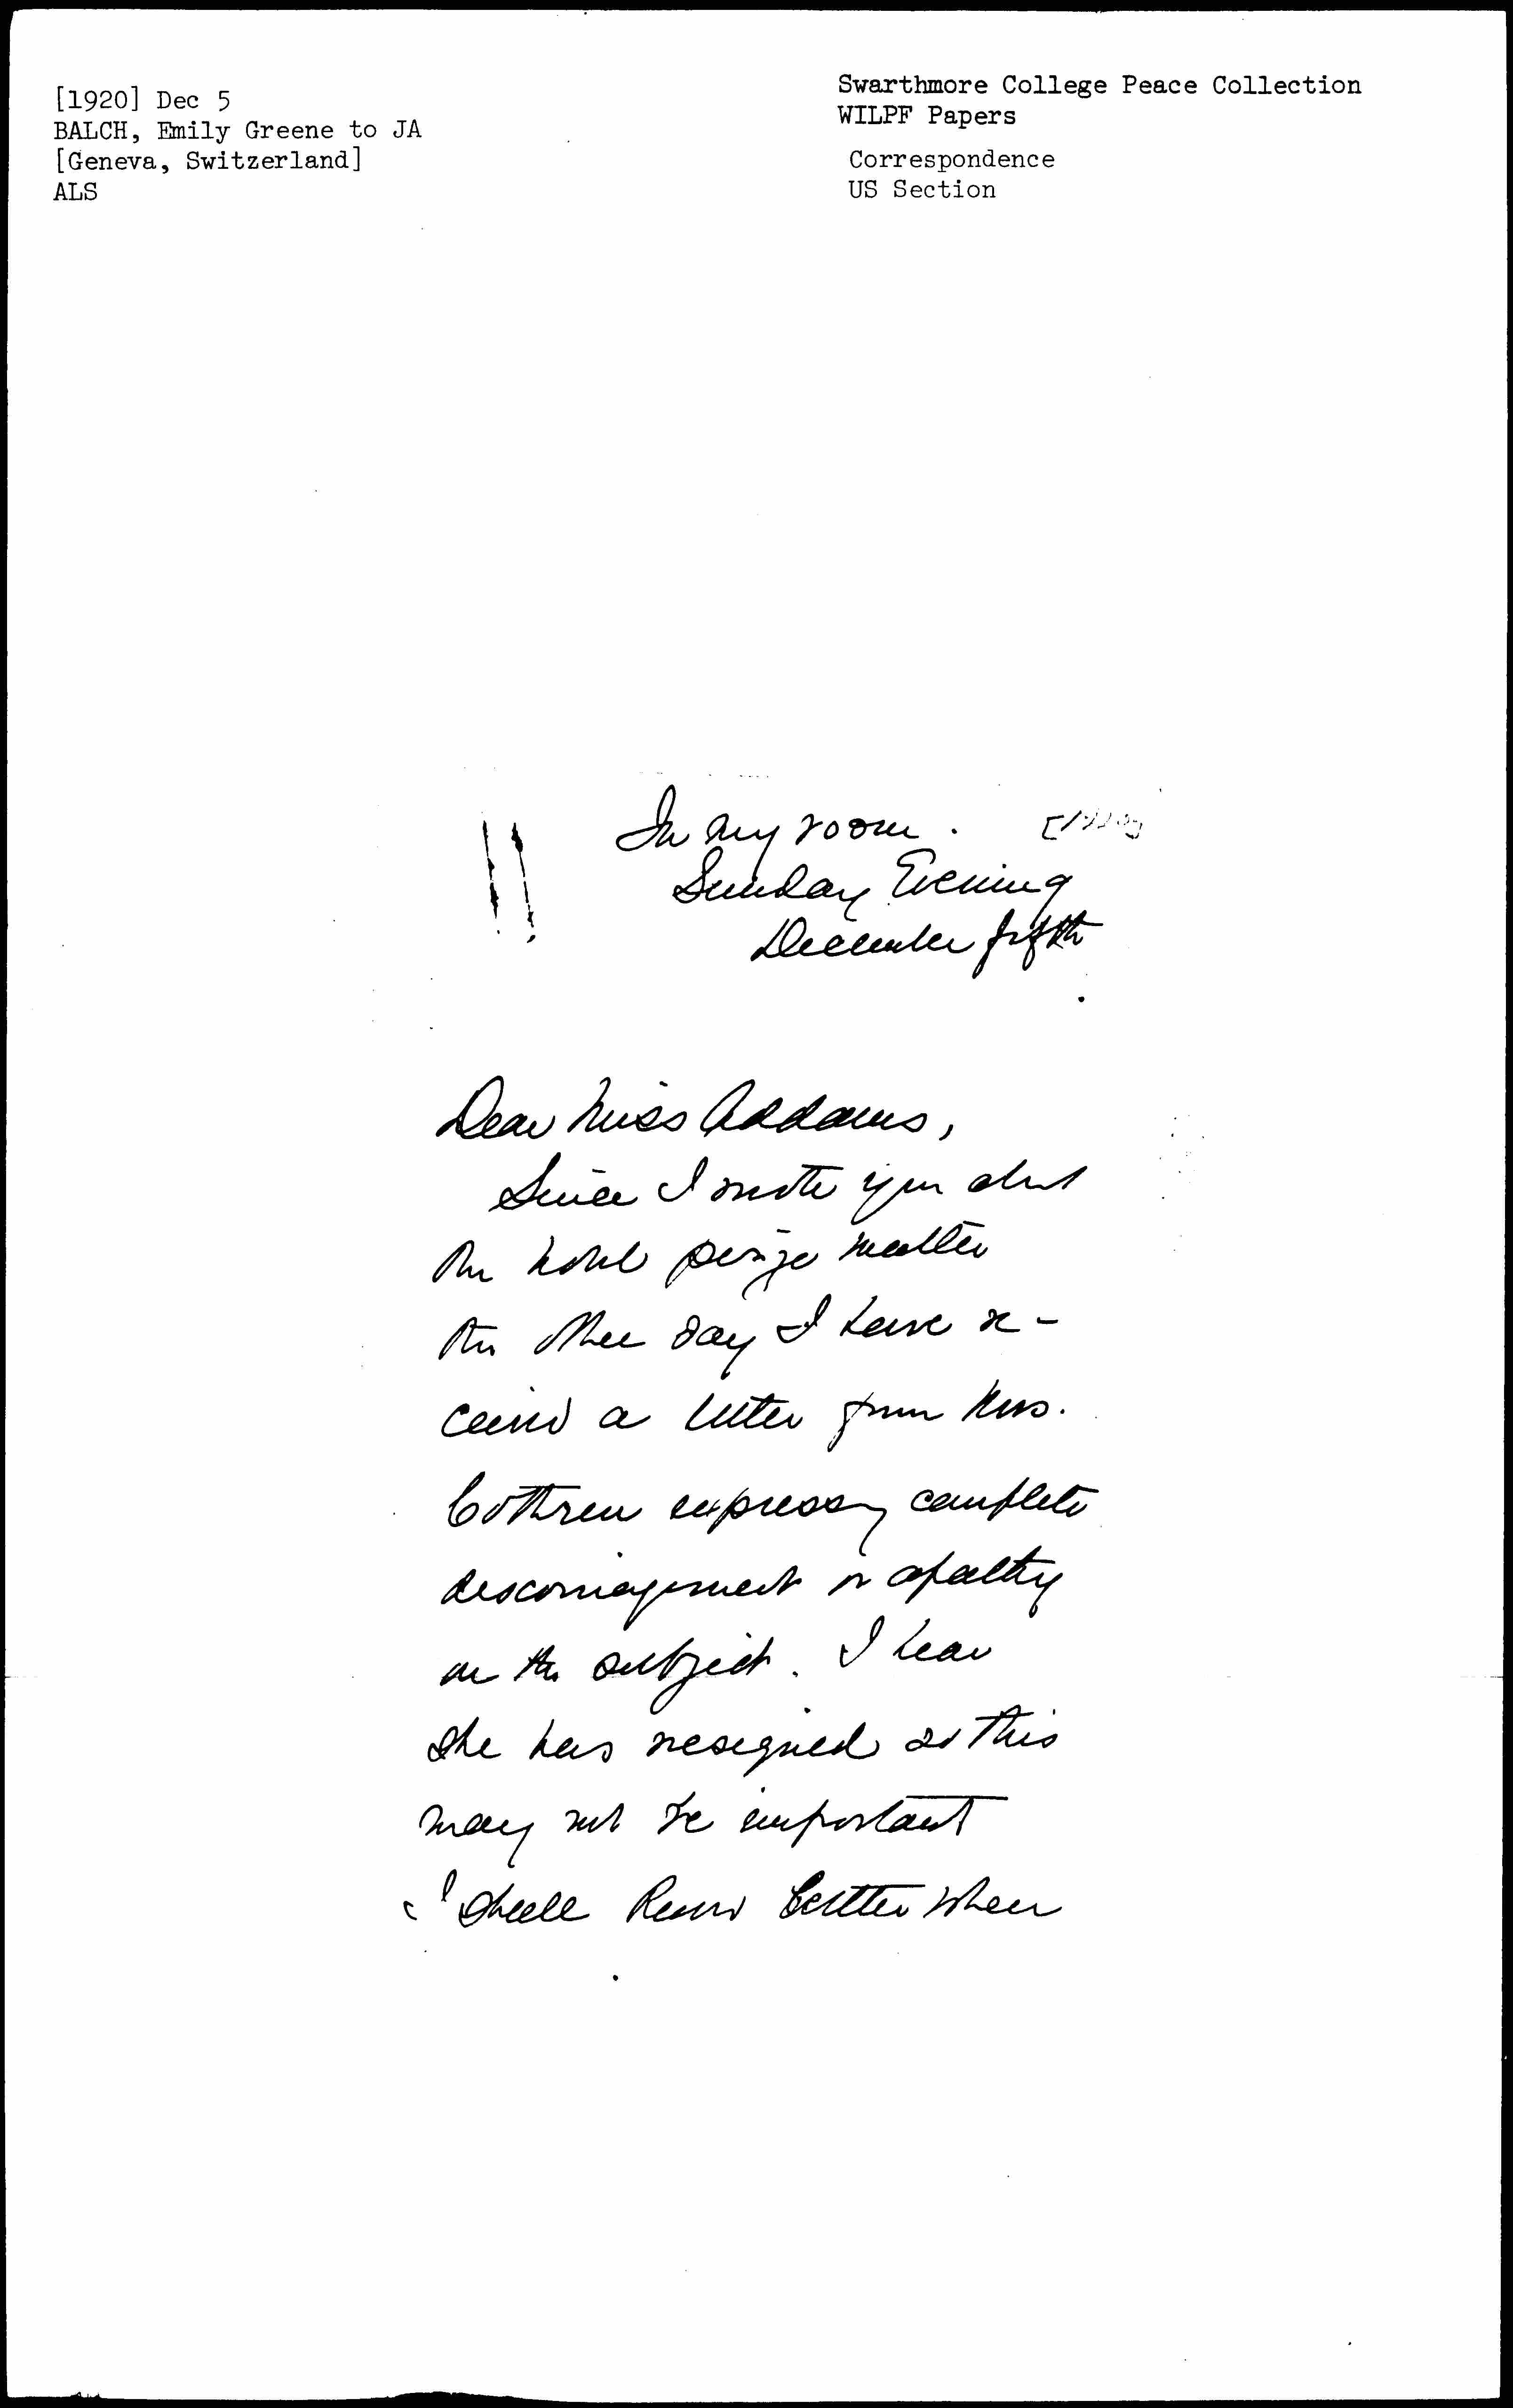 [1920] Dec 5
BALCH, Emily Greene to JA
[Geneva, Switzerland]
ALS
Swarthmore College Peace Collection
WILPF Papers
Correspondence
US Section
In my room. [1920]
Sunday Evening
December fifth
Dear Miss Addams,
Since I wrote you about
the Nobel prize matter
the other day I have re-
ceived a letter from Mrs.
Cothren expressing complete
discouragement or apathy
on the subject. I hear
she has resigned so this
may not be important
I shall know better when